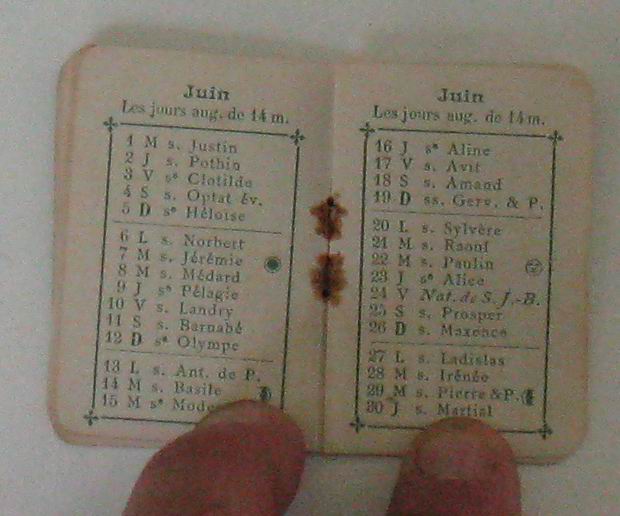 Juin
Les jours aug. de 14 m.
1 M s. Justin
2 J s. Pothin
3 V sᵉ Clotilde
4 S s. Optat év.
5 D sᵉ Héloïse
6 L s. Norbert
7 M s. Jérémie
8 M s. Médard
9 J sᵉ Pélagie
10 V s. Landry
11 S s. Barnabé
12 D sᵉ Olympe
13 L s. Ant. de P.
14 M s. Basile
15 M sᵉ
Juin
Les jours aug. de 14 m.
16 J sᵉ Aline
17 V s. Avit
18 S s. Amand
19 D ss. Gerv. & P.
20 L s. Sylvère
21 M s. Raoul
22 M s. Paulin
23 J sᵉ Alice
24 V Nat. de S. J.-B.
25 S s. Prosper
26 D s. Maxence
27 L s. Ladislas
28 M s. Irénée
29 M s. Pierre & P.
30 J s. Martial